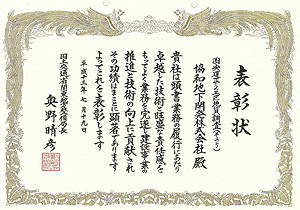 表彰状
協和地下開発株式会社 殿
貴社は頭書業務の履行にあたり
卓越した技術と旺盛な責任感を
もってよく業務を完遂し建設事業の
推進と技術の向上に貢献され
その功績はまことに顕著であります
よってこれを表彰します
平成十三年七月十九日
国土交通省関東地方整備局長
奥野晴彦